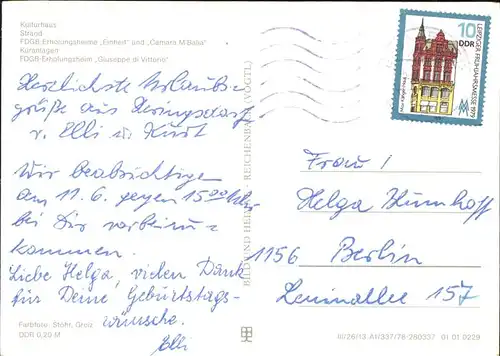 Kulturhaus
Strand
FDGB-Erholungsheime „Einheit" und „Camara M'Balia"
Kuranlagen
FDGB-Erholungsheim „Giuseppe di Vittorio"
Herzlichste Urlaubs-
grüße aus Heringsdorf
v. Elli u. Kurt
Wir beabsichtigen
am 11.6. gegen 15.00 Uhr
bei Dir vorbeizu-
kommen.
Liebe Helga, vielen Dank
für Deine Geburtstags-
wünsche.
Elli
Farbfotos: Stöhr, Greiz
DDR 0,20 M
BILD UND HEIMAT REICHENBACH (VOGTL)
LEIPZIGER FRÜHJAHRSMESSE 1979
10
DDR
MM
Frau
Helga
1156 Berlin
Leninallee 157
III/26/13 A1/337/78-280337 01 01 0229